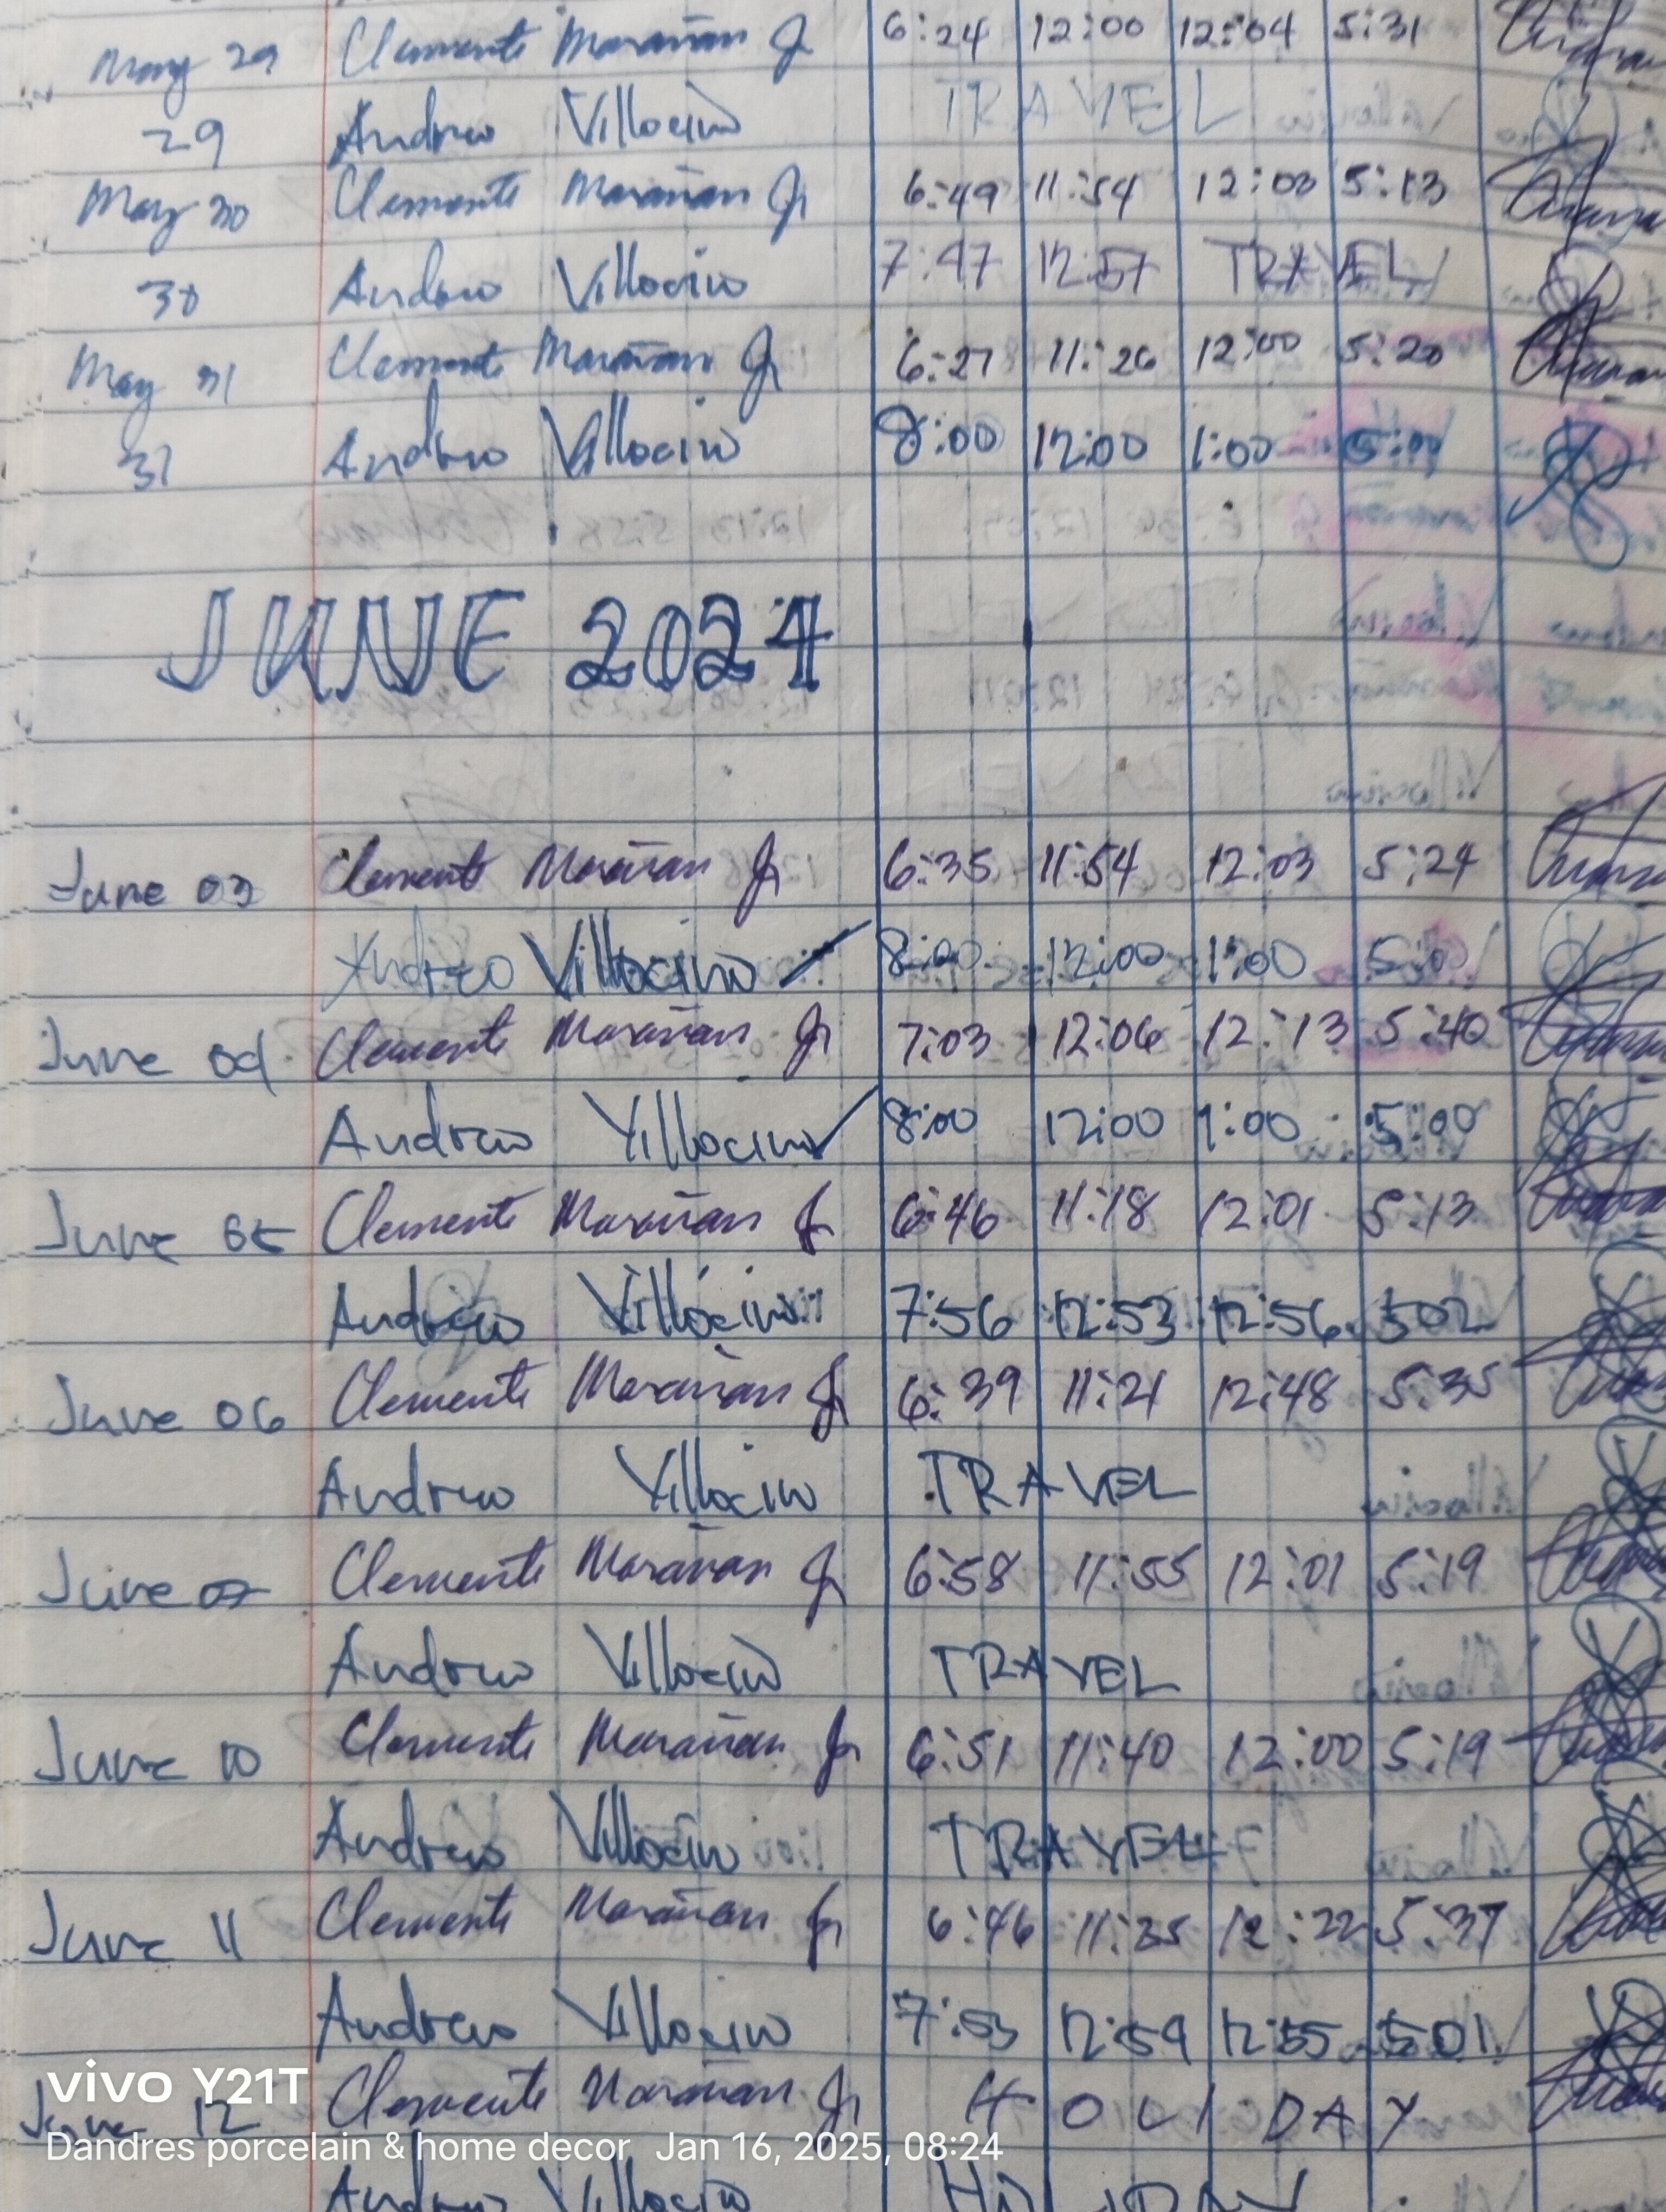 May 29 Clemente Marañan Jr 6:24 12:00 12:04 5:31
29 Andrew Villocino TRAVEL
May 30 Clemente Marañan Jr 6:49 11:54 12:00 5:13
30 Andrew Villocino 7:47 12:57 TRAVEL
May 31 Clemente Marañan Jr 6:27 11:26 12:00 5:20
31 Andrew Villocino 8:00 12:00 1:00 5:00
JUNE 2024
June 03 Clemente Marañan Jr 6:35 11:54 12:03 5:24
Andrew Villocino 8:00 12:00 1:00 5:00
June 04 Clemente Marañan Jr 7:03 12:06 12:13 5:40
Andrew Villocino 8:00 12:00 1:00 5:00
June 05 Clemente Marañan Jr 6:46 11:18 12:01 5:13
Andrew Villocino 7:56 12:53 12:56 502
June 06 Clemente Marañan Jr 6:39 11:21 12:48 5:35
Andrew Villocino TRAVEL
June 07 Clemente Marañan Jr 6:58 11:55 12:01 5:19
Andrew Villocino TRAVEL
June 10 Clemente Marañan Jr 6:51 11:40 12:00 5:19
Andrew Villocino TRAVEL
June 11 Clemente Marañan Jr 6:46 11:35 12:22 5:37
Andrew Villocino 7:53 12:59 12:55 501
vivo Y21T
June 12 Clemente Marañan Jr HOLIDAY
Dandres porcelain & home decor Jan 16, 2025, 08:24
Andrew Villocino HOLIDAY